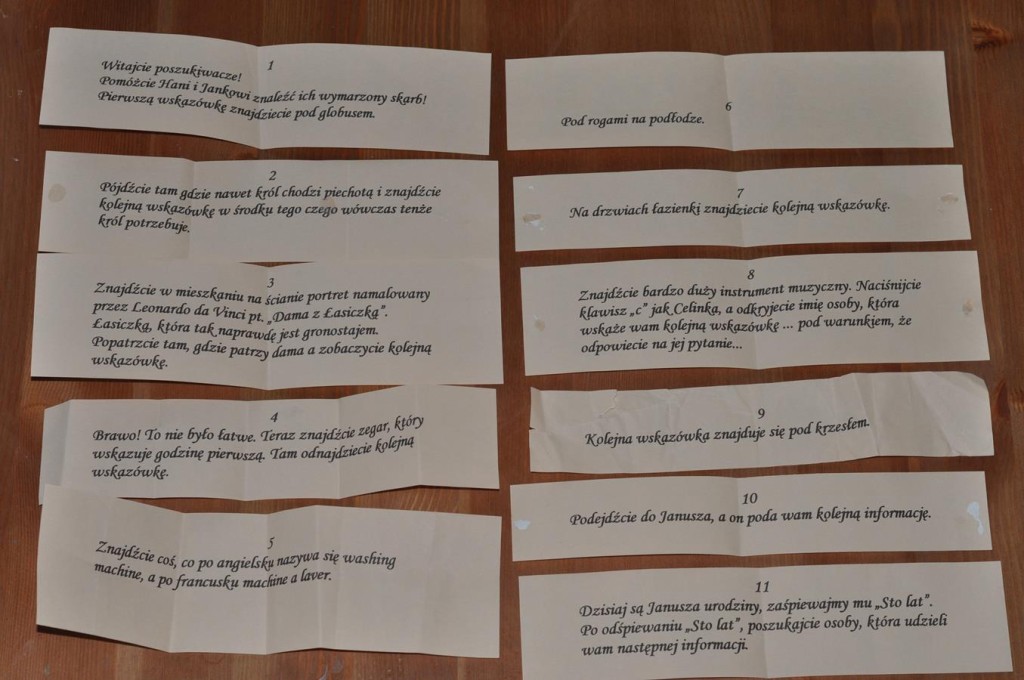 1
Witajcie poszukiwacze!
Pomóżcie Hani i Jankowi znaleźć ich wymarzony skarb!
Pierwszą wskazówkę znajdziecie pod globusem.
2
Pójdźcie tam gdzie nawet król chodzi piechotą i znajdźcie
kolejną wskazówkę w środku tego czego wówczas tenże
król potrzebuje.
3
Znajdźcie w mieszkaniu na ścianie portret namalowany
przez Leonardo da Vinci pt. „Dama z Łasiczką”.
Łasiczką, która tak naprawdę jest gronostajem.
Popatrzcie tam, gdzie patrzy dama a zobaczycie kolejną
wskazówkę.
4
Brawo! To nie było łatwe. Teraz znajdźcie zegar, który
wskazuje godzinę pierwszą. Tam odnajdziecie kolejną
wskazówkę.
5
Znajdźcie coś, co po angielsku nazywa się washing
machine, a po francusku machine a laver.
6
Pod rogami na podłodze.
7
Na drzwiach łazienki znajdziecie kolejną wskazówkę.
8
Znajdźcie bardzo duży instrument muzyczny. Naciśnijcie
klawisz „c” jak Celinka, a odkryjecie imię osoby, która
wskaże wam kolejną wskazówkę ... pod warunkiem, że
odpowiecie na jej pytanie...
9
Kolejna wskazówka znajduje się pod krzesłem.
10
Podejdźcie do Janusza, a on poda wam kolejną informację.
11
Dzisiaj są Janusza urodziny, zaśpiewajmy mu „Sto lat”.
Po odśpiewaniu „Sto lat”, poszukajcie osoby, która udzieli
wam następnej informacji.